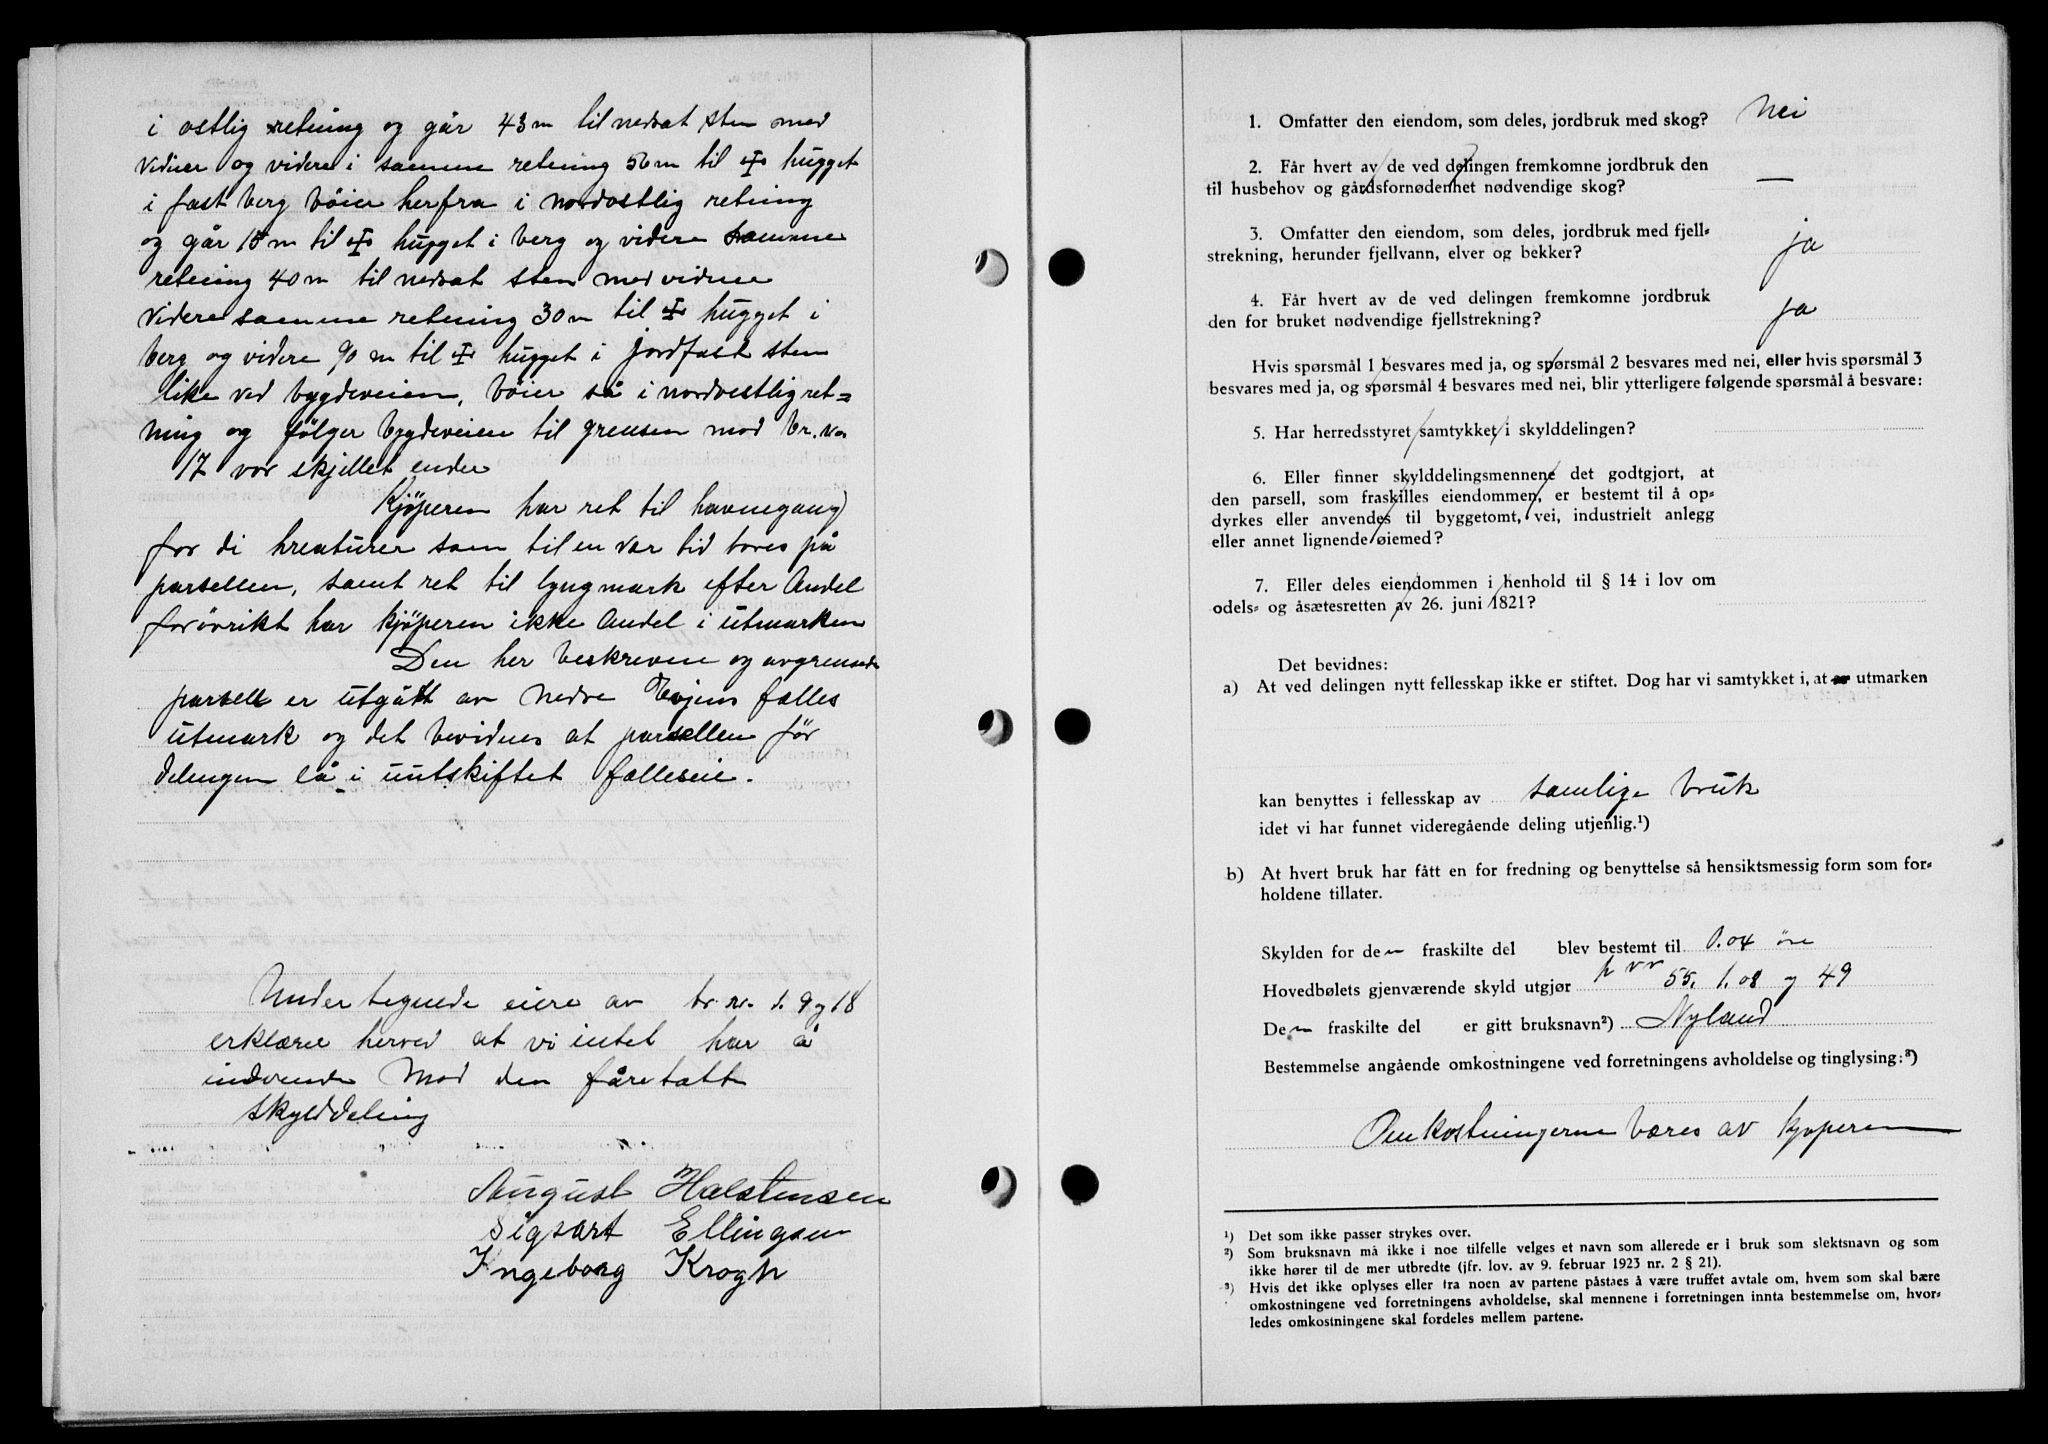 i ostlig retning og går 43 m til nedsat sten med
vidner og videre i samme retning 50 m til hugget
i fast berg böier herfra i nordostlig retning
og går 15 m til hugget i berg og videre samme
retning 40 m til nedsat sten med vidne
videre samme retning 30 m til hugget i
berg og videre 90 m til hugget i jordfast sten
like ved bygdeveien, böier så i nordvestlig ret=
ning og følger bygdeveien til grensen mod br. no
17 vor skjellet ender
Kjøperen har ret til havnegang
for di kreaturer som til en var tid fores på
parsellen, samt ret til lyngmark efter Andel
forövrikt har kjøperen ikke Andel i utmarken
Den her beskrevne og avgrensede
parsell er utgått av nedre fælles
utmark og det bevidnes at parsellen før
delingen lå i uutskiftet fælleseie.
Undertegnede eiere av br. nr. 1. 9 og 18
erklærer herved at vi intet har å
indvende Mod den fåretatt
skylddeling
August Halstensen
Sigvart Ellingsen
Ingeborg Krogh
1. Omfatter den eiendom, som deles, jordbruk med skog? Nei
2. Får hvert av de ved delingen fremkomne jordbruk den
til husbehov og gårdsfornødenhet nødvendige skog? —
3. Omfatter den eiendom, som deles, jordbruk med fjell=
strekning, herunder fjellvann, elver og bekker? ja
4. Får hvert av de ved delingen fremkomne jordbruk
den for bruket nødvendige fjellstrekning? ja
Hvis spørsmål 1 besvares med ja, og spørsmål 2 besvares med nei, eller hvis spørsmål 3
besvares med ja, og spørsmål 4 besvares med nei, blir ytterligere følgende spørsmål å besvare:
5. Har herredsstyret samtykket i skylddelingen?
6. Eller finner skylddelingsmennene det godtgjort, at
den parsell, som fraskilles eiendommen, er bestemt til å op=
dyrkes eller anvendes til byggetomt, vei, industrielt anlegg
eller annet lignende øiemed?
7. Eller deles eiendommen i henhold til § 14 i lov om
odels= og åsætesretten av 26. juni 1821?
Det bevidnes:
a) At ved delingen nytt fellesskap ikke er stiftet. Dog har vi samtykket i, at er utmarken
kan benyttes i fellesskap av samlige bruk
idet vi har funnet videregående deling utjenlig.¹)
b) At hvert bruk har fått en for fredning og benyttelse så hensiktsmessig form som for=
holdene tillater.
Skylden for den fraskilte del blev bestemt til 0.04 øre
Hovedbølets gjenværende skyld utgjør 55, 1.08 og 49
Den fraskilte del er gitt bruksnavn²) Nyland
Bestemmelse angående omkostningene ved forretningens avholdelse og tinglysing:³)
Omkostningerne bæres av kjøperen
¹) Det som ikke passer strykes over.
²) Som bruksnavn må ikke i noe tilfelle velges et navn som allerede er i bruk som slektsnavn og som
ikke hører til de mer utbredte (jfr. lov. av 9. februar 1923 nr. 2 § 21).
³) Hvis det ikke oplyses eller fra noen av partene påstaes å være truffet avtale om, hvem som skal bære
omkostningene ved forretningens avholdelse, skal mennene i forretningen innta bestemmelse om, hvor=
ledes omkostningene skal fordeles mellem partene.